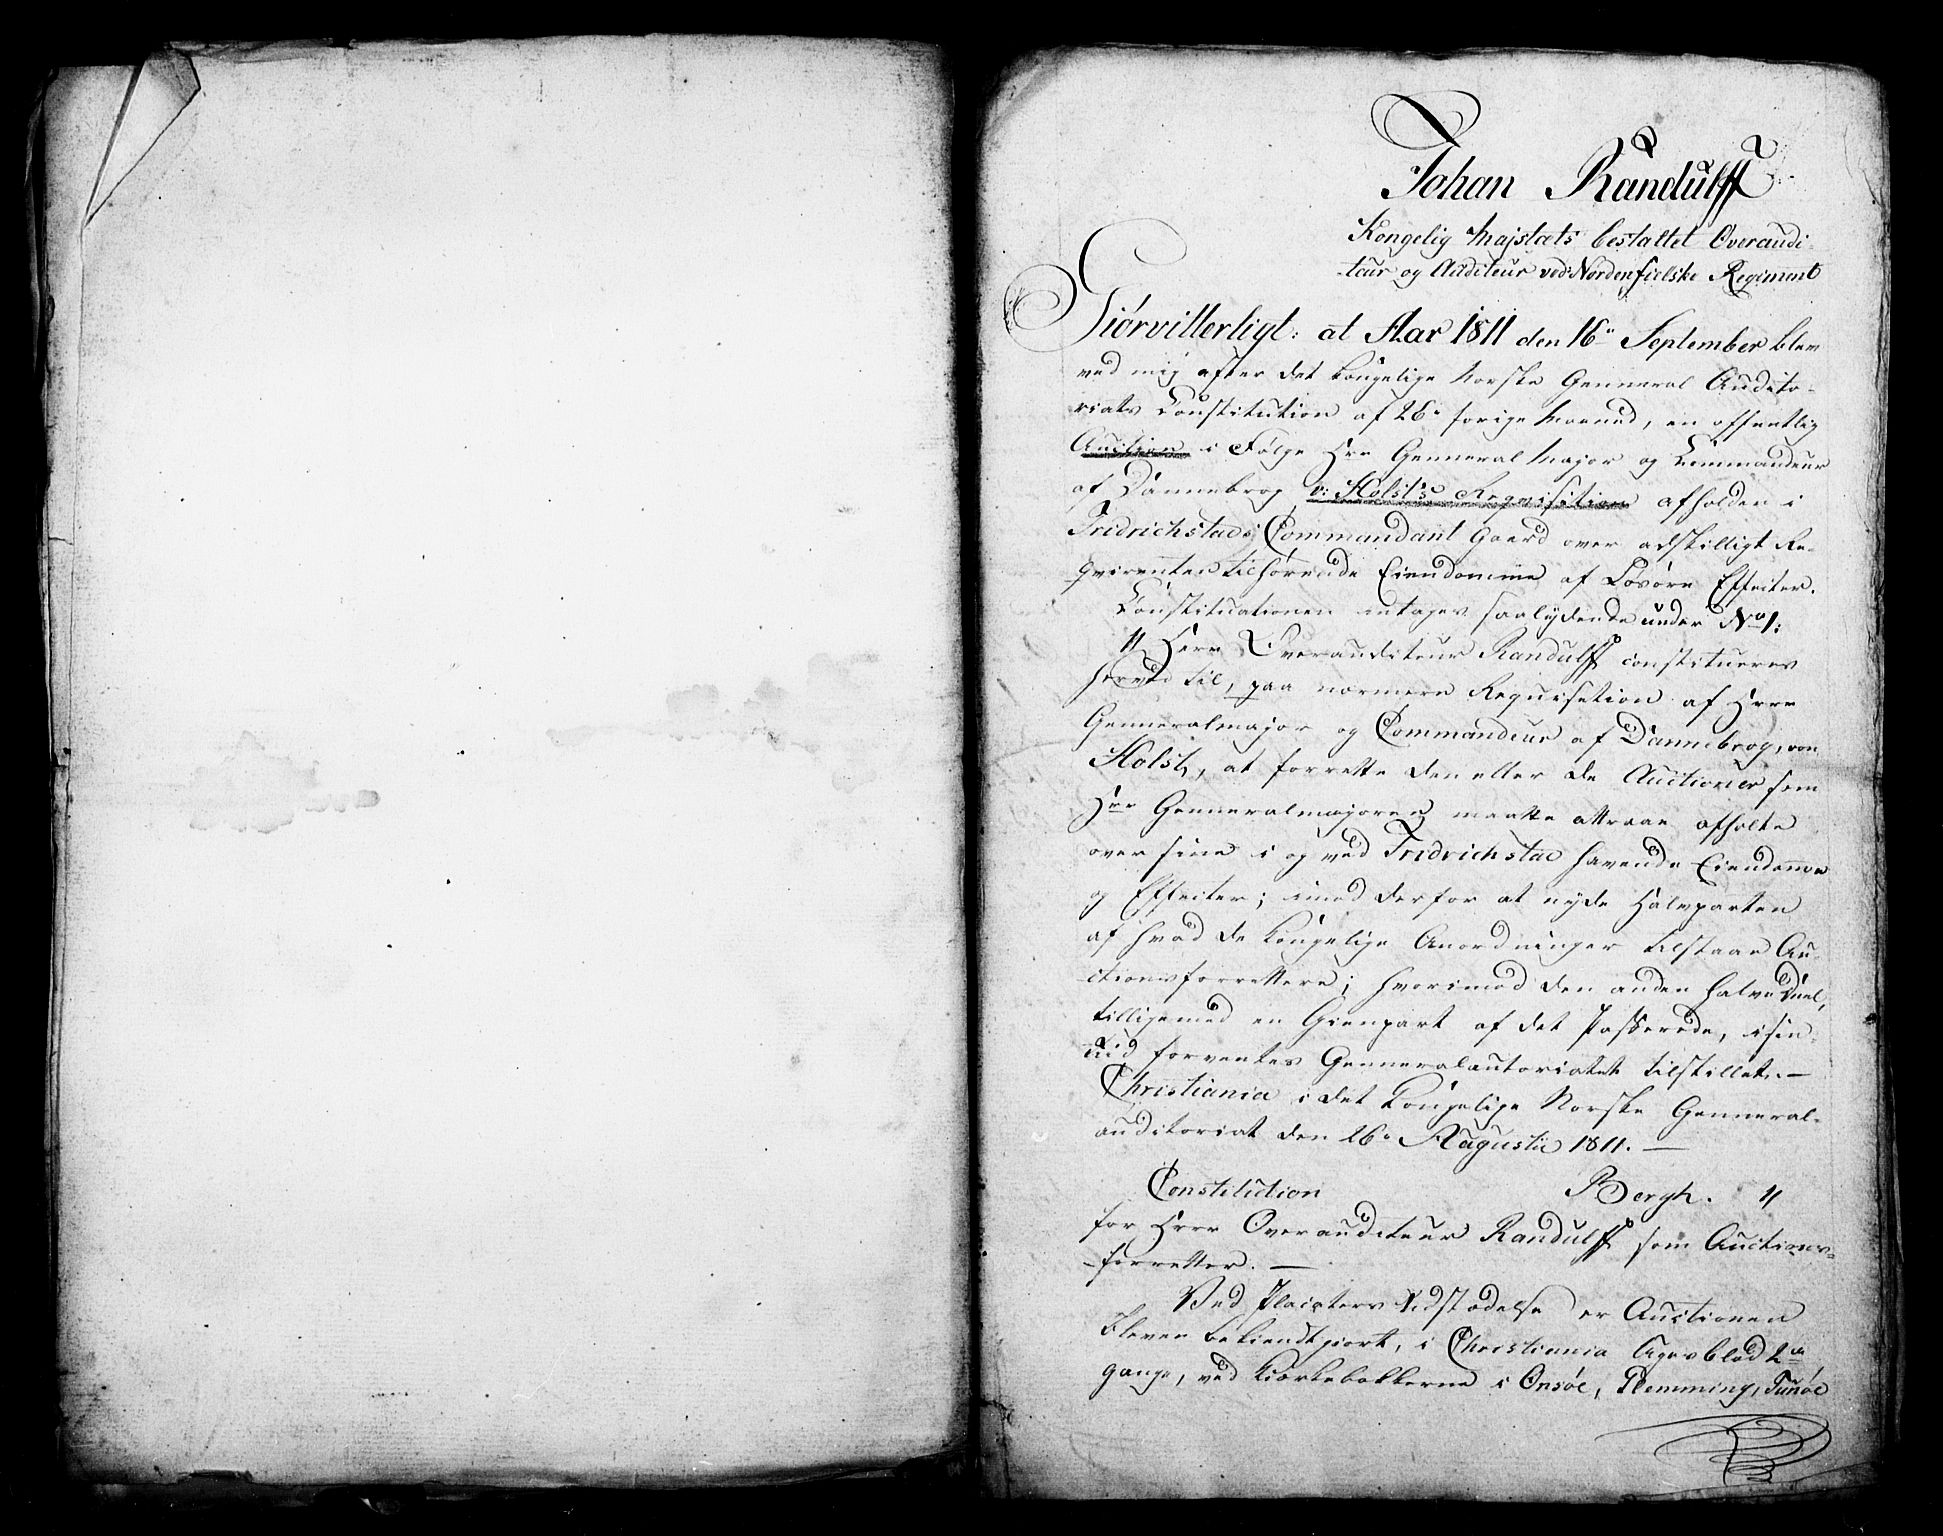 Johan Randulff
Kongelig Majstæts bestaltet Overaudi-
teur og Auditeur ved Nordenfielske Regiment
Giørvitterligt: at Aar 1811 den 16de September blev
ved mig efter det kongelige Norske Genneral Audito-
riats Constitution af 26de forige Maaned, en offentlig
Auction i Følge Herr Genneral Major og Commandeur
af Dannebrog v: Holst's Requisition afholden i
Fridrichstads Commandant Gaard over adskilligt Re-
qvirenten tilhørende Eiendomme af Løsøre Effecter.
Constitutionen intages saalydende under No 1:
// Herr Overauditeur Randulff constitueres
herved til, paa nærmere Requisition af Herr
Genneralmajor og Commandeur af Dannebrog, von
Holst, at forrette den eller de Auctioner som
Herr Genneralmajoren maatte attraae afholte
over sine i og ved Fridrichstad havende Eiendomme
og Effecter; imod derfor at nyde Halvparten
af hvad de kongelige Anordninger tilstaae Au-
ctionsforrettere; hvorimod den anden halve Deel,
tilligemed en Gienpart af det Passerede, i sin
tid forventes Genneralautoriatet tilstillet. —
Christiania i det kongelige Norske Genneral-
auditoriat den 26de Augustii 1811. —
Constitution Bergh. //
for Herr Overauditeur Randulff som Auctions-
forretter. —
Ved Placaters Udstædelse er Auctionen
bleven bekiendtgiort, i Christiania 2de
gange, ved Kirkebakkerne i Onsøe, Glemming, Tunøe